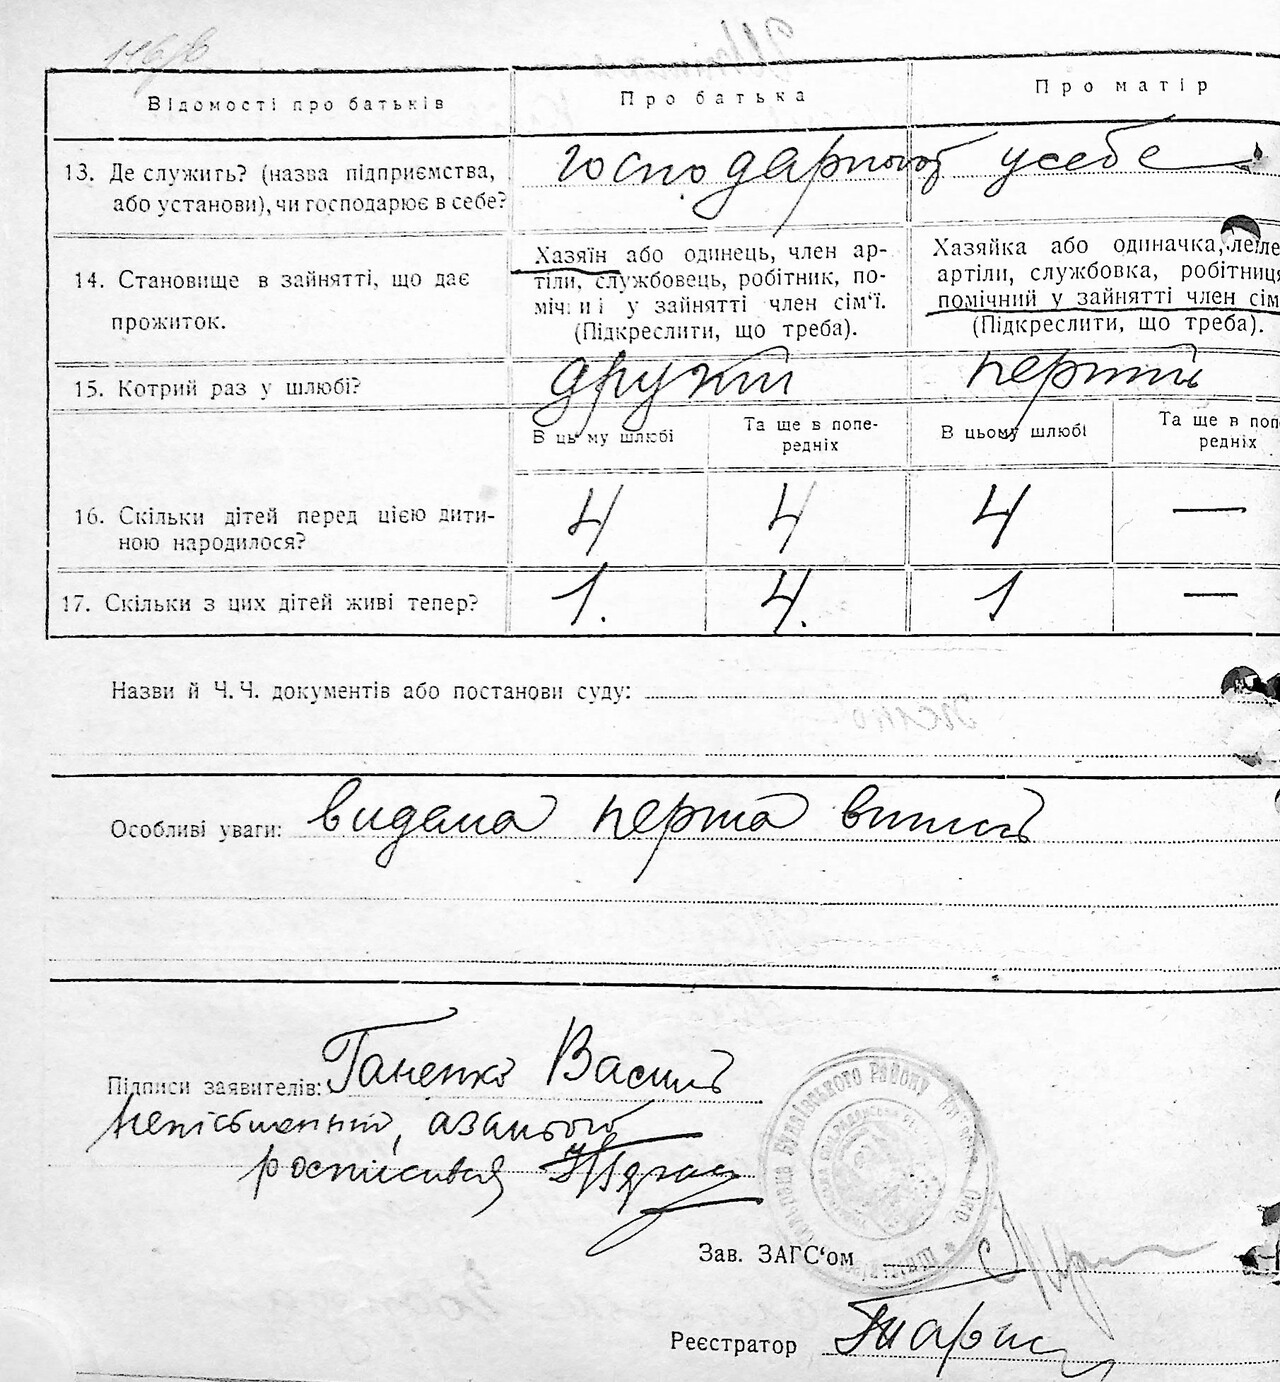 146/в
Відомості про батьків
Про батька
Про матір
13. Де служить? (назва підприємства,
або установи), чи господарює в себе?
господарюють у себе
14. Становище в зайнятті, що дає
прожиток.
Хазяїн або одинець, член ар-
тіли, службовець, робітник, по-
мічн и і у зайнятті член сім'ї.
(Підкреслити, що треба).
Хазяйка або одиначка,
артіли, службовка, робітниця
помічний у зайнятті член сім
(Підкреслити, що треба).
15. Котрий раз у шлюбі?
другий
перший
В цьому шлюбі
Та ще в попе-
редніх
В цьому шлюбі
Та ще в поп
редніх
16. Скільки дітей перед цією дити-
ною народилося?
4 4 4 —
17. Скільки з цих дітей живі тепер?
1. 4. 1 —
Назви й Ч.Ч. документів або постанови суду:
Особливі уваги: видана перша випись
Підписи заявителів: Ганенко Василь
неписьменний, а за нього
росписивсь
Зав. ЗАГС'ом
Реєстратор